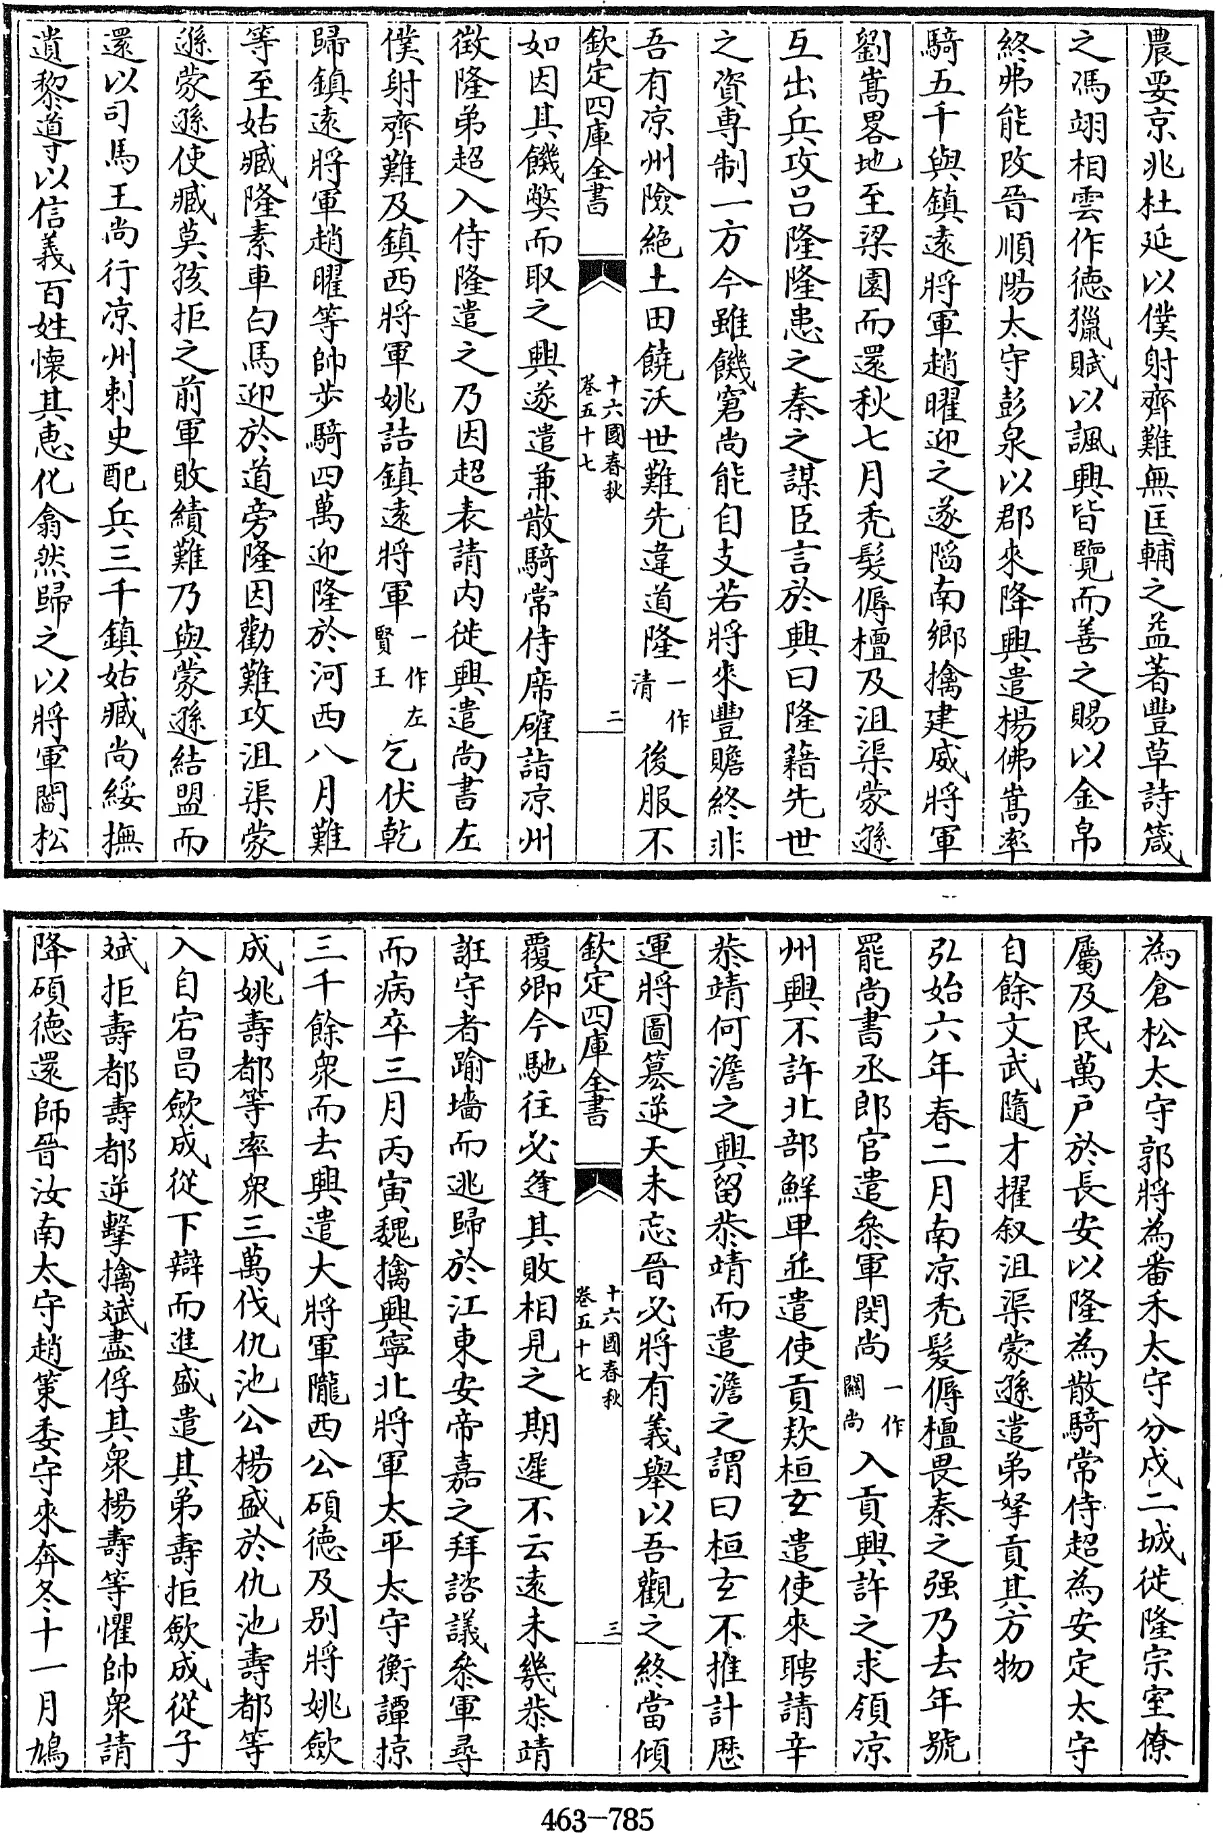 農妟京兆杜延以僕射齊難無匡輔之益著豐草詩箴
之馮翊相雲作德獵賦以諷興皆覽而善之賜以金帛
終弗能改晉順陽太守彭泉以郡來降興遣楊佛嵩率
騎五千與鎮遠將軍趙曜迎之遂䧟南鄉擒建威將軍
劉嵩畧地至梁國而還秋七月禿髮傉檀及沮渠蒙遜
互出兵攻呂隆隆患之秦之謀臣言於興曰隆藉先世
之資專制一方今雖饑窘尚能自支若將來豐贍終非
吾有凉州險絶土田饒沃世難先違道隆一作清後服不
欽定四庫全書 十六國春秋卷五十七 二
如因其饑獘而取之興遂遣兼散騎常侍席確詣凉州
徵隆弟超入侍隆遣之乃因超表請内徙興遣尚書左
僕射齊難及鎮西將軍姚詰鎮遠將軍一作左賢王乞伏乾
歸鎮遠將軍趙曜等帥步騎四萬迎隆於河西八月難
等至姑臧隆素車白馬迎於道旁隆因勸難攻沮渠蒙
遜蒙遜使臧莫孩拒之前軍敗績難乃與蒙遜結盟而
還以司馬王尚行凉州刺史配兵三千鎮姑臧尚綏撫
遺黎導以信義百姓懷其惠化翕然歸之以將軍閻松
為倉松太守郭將為番禾太守分戍二城徙隆宗室僚
屬及民萬戸於長安以隆為散騎常侍超為安定太守
自餘文武隨才擢叙沮渠蒙遜遣弟孥貢其方物
弘始六年春二月南凉禿髮傉檀畏秦之强乃去年號
罷尚書丞郎官遣參軍閔尚一作關尚入貢興許之求領凉
州興不許北部鮮卑並遣使貢欵桓𤣥遣使來聘請辛
恭靖何澹之興留恭靖而遣澹之謂曰桓𤣥不推計歴
運將圖簒逆天未忘晉必將有義舉以吾觀之終當傾
欽定四庫全書 十六國春秋卷五十七 三
覆卿今馳往必逢其敗相見之期遲不云遠未幾恭靖
誑守者踰墻而逃歸於江東安帝嘉之拜諮議參軍尋
而病卒三月丙寅魏擒興寧北將軍太平太守衡譚掠
三千餘衆而去興遣大將軍隴西公碩德及别將姚歛
成姚壽都等率衆三萬伐仇池公楊盛於仇池壽都等
入自宕昌歛成從下辯而進盛遣其弟壽拒歛成從子
斌拒壽都壽都逆擊擒斌盡俘其衆楊壽等懼帥衆請
降碩德還師晉汝南太守趙策委守來奔冬十一月鳩
463-785